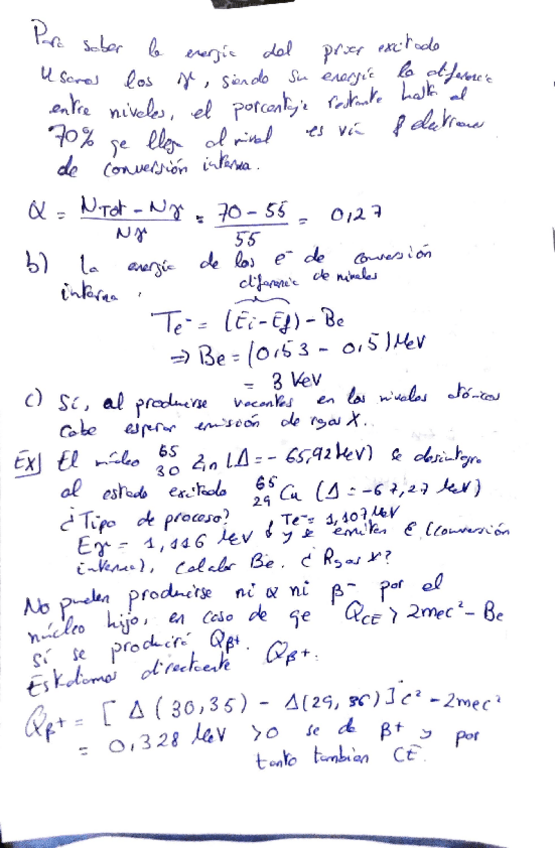 Para saber la energía del primer excitado
usamos los γ, siendo su energía la diferencia
entre niveles, el porcentaje restante hasta el
70% qe llega al nivel es vía electrones
de conversión interna.
α = NTot - Nγ / Nγ = 70 - 55 / 55 = 0,27
b) La energía de los e⁻ de conversión
interna,
diferencia de niveles
Te⁻ = (Ei - Ef) - Be
⇒ Be = (0,53 - 0,5) MeV
= 3 KeV
c) Sí, al producirse vacantes en los niveles atómicos
cabe esperar emisión de rayos X.
EX) El núcleo ⁶⁵₃₀Zn (Δ = - 65,92 MeV) se desintegra
al estado excitado ⁶⁵₂₉Cu (Δ = -67,27 MeV)
¿Tipo de proceso?
Te⁻ = 1,107 MeV
Eγ = 1,116 MeV y se emiten e⁻ (conversión
interna), calcular Be. ¿Rayos X?
No pueden producirse ni α ni β⁻ por el
núcleo hijo, en caso de qe QCE > 2mec² - Be
sí se producirá Qβ+.
Estudiamos directamente Qβ+.
Qβ+ = [Δ(30,35) - Δ(29,36)]c² - 2mec²
= 0,328 MeV > 0 se da β+ y por
tanto tambien CE.